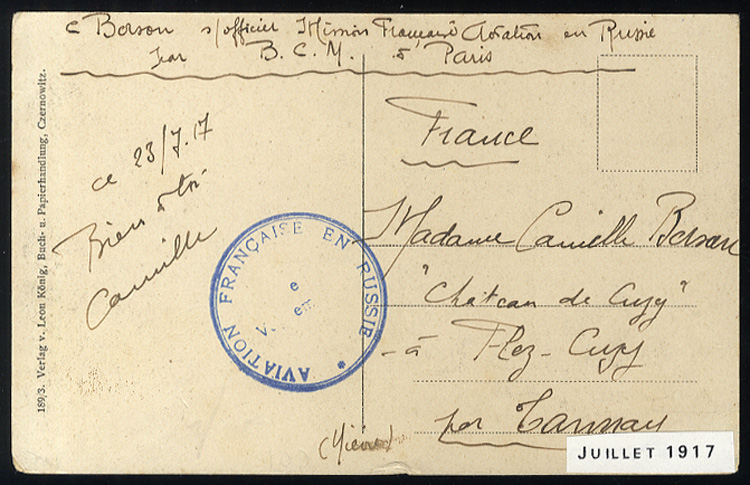 C Berson s/officier Mission Française Aviation en Russie
par B. C. M. à Paris
France
ce 23/7.17
Bien à toi
Camille
Madame Camille Berson
"Château de Cuzy"
- à Flez-Cuzy
par Tannay
(Nièvre)
AVIATION FRANÇAISE EN RUSSIE *
189/3. Verlag v. Leon König, Buch- u. Papierhandlung, Czernowitz.
JUILLET 1917